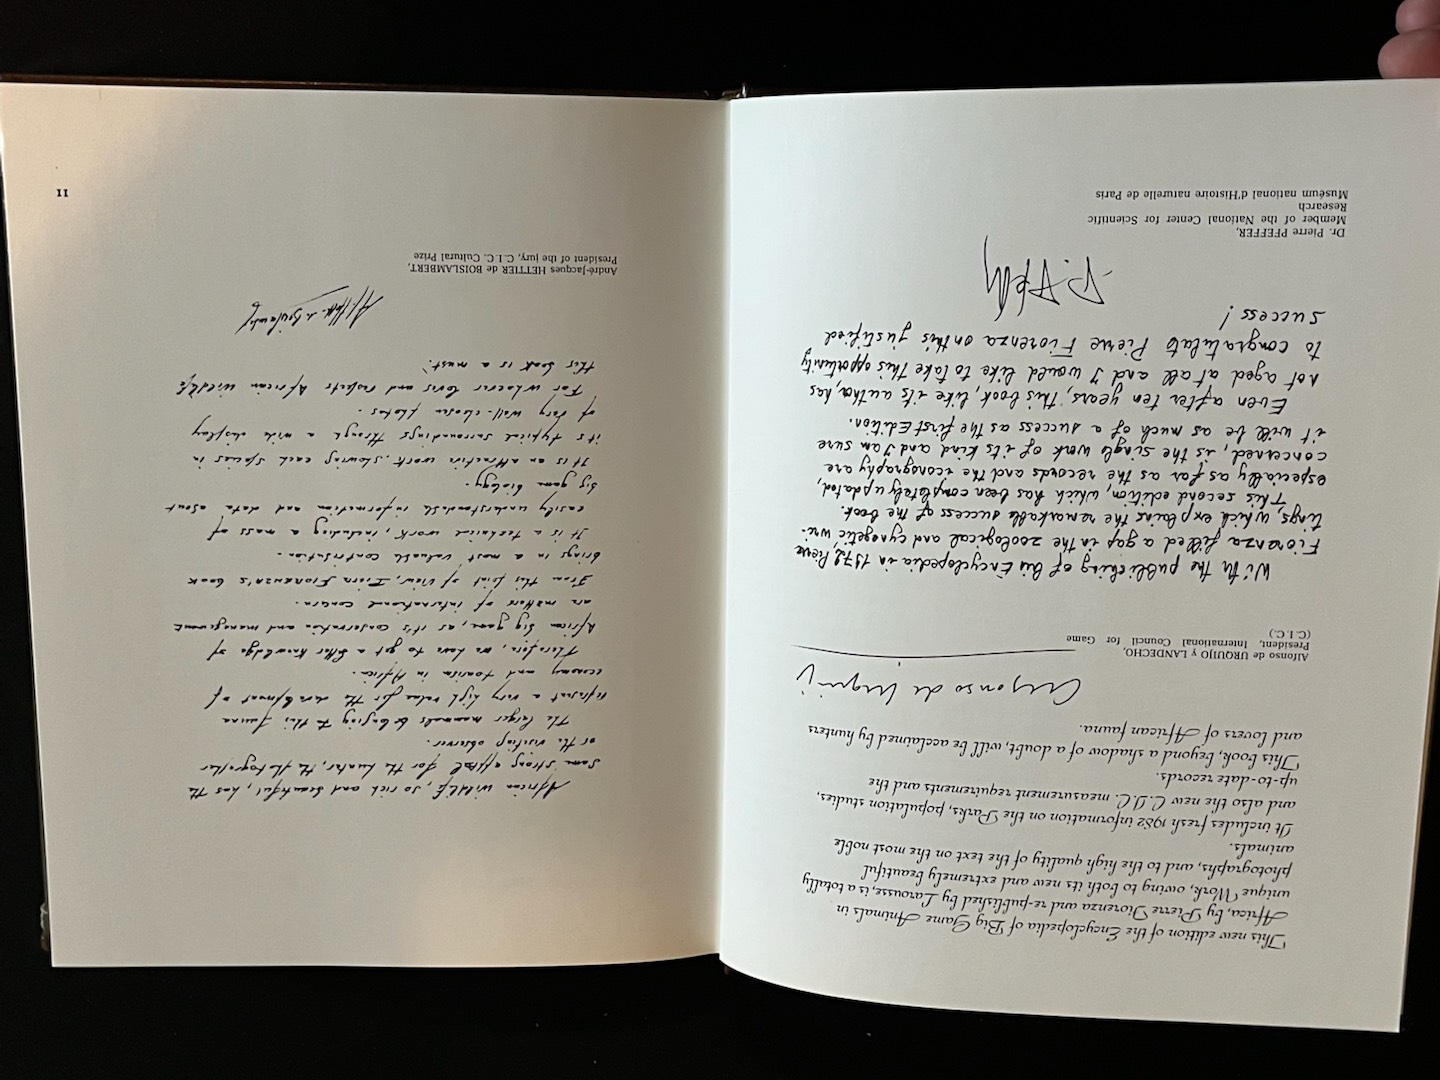 This new edition of the Encyclopedia of Big Game Animals in
Africa, by Pierre Fiorenza and re-published by Larousse, is a totally
unique Work, owing to both its new and extremely beautiful
photographs, and to the high quality of the text on the most noble
animals.
It includes fresh 1982 information on the Parks, population studies,
and also the new C.I.C. measurement requirements and the
up-to-date records.
This book, beyond a shadow of a doubt, will be acclaimed by hunters
and lovers of African fauna.
Alfonso de Urquijo
Alfonso de URQUIJO y LANDECHO,
President, International Council for Game
(C.I.C.)
With the publishing of his Encyclopedia in 1972, Pierre
Fiorenza filled a gap in the zoological and cynegetic wri-
tings, which explains the remarkable success of the book.
This second edition, which has been completely updated,
especially as far as the records and the iconography are
concerned, is the single work of its kind and I am sure
it will be as much of a success as the first Edition.
Even after ten years, this book, like its author, has
not aged at all and I would like to take this opportunity
to congratulate Pierre Fiorenza on this justified
success!
Dr. Pierre PFEFFER,
Member of the National Center for Scientific
Research
Muséum national d'Histoire naturelle de Paris
African wildlife, so rich and beautiful, has the
same strong appeal for the hunter, the photographer
or the visiting observer.
The larger mammals belonging to this fauna
represent a very high value for the development of
economy and tourism in Africa.
Therefore, we have to get a better knowledge of
African big game, as it's conservation and management
are matters of international concern.
From this point of view, Pierre Fiorenza's book
brings in a most valuable contribution.
It is a technical work, including a mass of
easily understandable information and data about
big game biology.
It is an attractive work, showing each species in
it's typical surroundings through a wide display
of very well-chosen photos.
For whoever loves and respects African wildlife
this book is a must.
André-Jacques HETTIER de BOISLAMBERT,
President of the jury, C.I.C. Cultural Prize
11